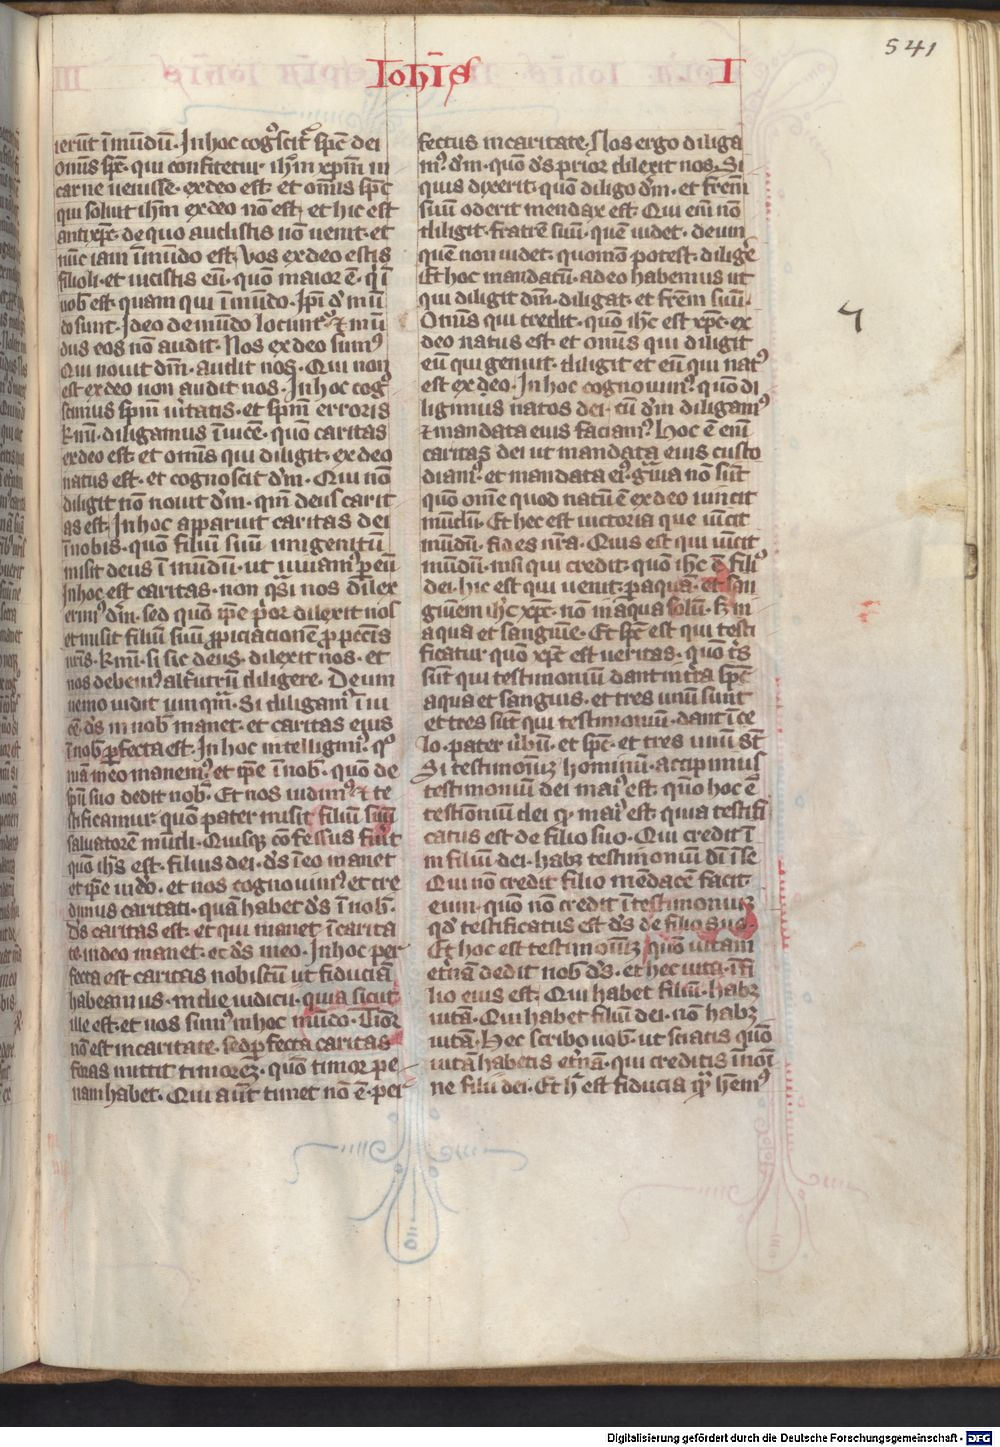 541
Ioħis I
ierūt ī mūdū. In hoc cogͦscit᷑ spc̄ dei
Omīs spc̄ qui confitetur ihm̄ xpm̄ in
carne uenisse. ex deo est. et omīs spc̄
qui soluit ihm̄ ex deo nō est. et hic est
antixpc̄. de quo audistis nō uenit. et
nūc iam ī mūdo est. Vos ex deo estis
filioli. et uicistis eū. quō maior ē. q̄ ī
nob̄ est. quam qui ī mūdo. Ipi dͤ mū
do sunt. Ideo de mūdo locūnt᷑. ⁊ mū
dus eos nō audit. Nos ex deo sumꝰ
Qui nouit dm̄. audit nos. Qui non
est ex deo non audit nos. In hoc cogͦ
scimus spm̄ ūitatis. et spm̄ erroris
Kmī. diligamus īuicē. quō caritas
ex deo est. et omīs qui diligit. ex deo
natus est. et cognoscit dm̄. Qui nō
diligit nō nouit dm̄. qm̄ deus carit
as est. In hoc apparuit caritas dei
ī nobis. quō filiū suū unigenitū
misit deus ī mūdū. ut uiuamꝰ ꝑ eū
In hoc est caritas. non q̄si nos dilex
erimꝰ dm̄. sed quō ipe p̄or dilexit nos
et misit filiū suū ꝓpiciacionē ꝓ pctīs
nr̄is. Kmī. si sic deus. dilexit nos. et
nos debemꝰ alt᷑utrū diligere. Deum
nemo uidit umqm̄. Si diligamꝰ ī ui
cē. dš in nob̄ manet. et caritas eius
ī nob̄ ꝑfecta est. In hoc intelligimꝰ. qͦ
niā in eo manemꝰ. et ipe ī nob̄. quō de
spū suo dedit nob̄. Et nos uidimꝰ. ⁊ te
stificamur. quō pater misit filiū suū
saluatorē mūdi. Quisqꝫ cōfessus fuit
quō ihs̄ est. filius dei. dš ī eo manet
et ipe ī dͦo. et nos cognouimꝰ. et cre
dimus caritati. quā habet dš ī nob̄.
Dš caritas est. et qui manet ī carita
te. in deo manet. et dš ī eo. In hoc per
fecta est caritas nobiscū ut fiduciā
habeamus. in die iudicii. quia sicut
ille est. et nos sumꝰ in hoc mūdo. Timor
nō est in caritate. sed ꝑfecta caritas
foras mittit timorē. quō timor pe
nam habet. Qui aūt timet nō ē. per
fectus in caritate. Nos ergo diliga
mꝰ dm̄. quō dš prior dilexit nos. Si
quis dixerit. quō diligo dm̄. et frēm
suū oderit mendax est. Qui eni nō
diligit. fratrē suū. quē uidet. deum
quē non uidet. quomō potest. diligē
Et hoc mandatū. a deo habemus ut
qui diligit dm̄. diligat. et frēm suū.
Omīs qui credit. quō ihc̄ est xpc̄. ex
deo natus est. et omīs qui diligit
eū qui genuit. diligit et eū. qui natꝰ
est ex deo. In hoc cognouimꝰ. quō di
ligimus natos dei. cū dm̄ diligamꝰ
⁊ mandata eius faciamꝰ. Hoc ē enī
caritas dei ut mandata eius custo
diamꝰ. et mandata eiꝰ. g̃uia nō sūt
quō om̄e quod natū ē ex deo uincit
mūdū. Et hec est uictoria que uīcit
mūdū. fides nr̄a. Quis est qui uīcit
mūdū. nisi qui credit. quō ihc̄ ē filiꝰ
dei. hic est qui uenit. ꝑ aquā. et san
guinem ihc̄ xpc̄. nō in aqua solū. s̄ in
aqua et sanguīe. Et spc̄ est qui testi
ficatur quō xpc̄ est ueritas. quō tr̄s
sūt qui testimoniū dant in tr̄a spc̄
aqua et sanguis. et tres unū sunt
et tres sūt qui testimoniū. dant ī ce
lo. pater ūbū. et spc̄. et tres unū st̄
Si testimoniū hominū. accipimus
testimoniū dei maiꝰ est. quō hoc ē
testioniū dei qͦ maiꝰ est. quia testifi
catus est de filio suo. Qui credit ī
in filiū dei. habꝫ testimoniū dī ī se
Qui nō credit filio mēdacē facit
eum. quō nō credit ī testimoniū
qd̄ testificatus est dš de filio suo.
Et hoc est testimoniū. quō uitam
et᷑nā dedit nob̄ dš. et hec uita. ī fi
lio eius est. Qui habet filiū. habꝫ
uitā. Qui habet filiū dei. nō habꝫ
uitā. Hec scribo uob̄. ut sciatis quō
uitā habetis et᷑nā. qui creditis ī noī
ne filii dei. Et h̄ est fiducia q̄ hēmꝰ
Digitalisierung gefördert durch die Deutsche Forschungsgemeinschaft - DFG